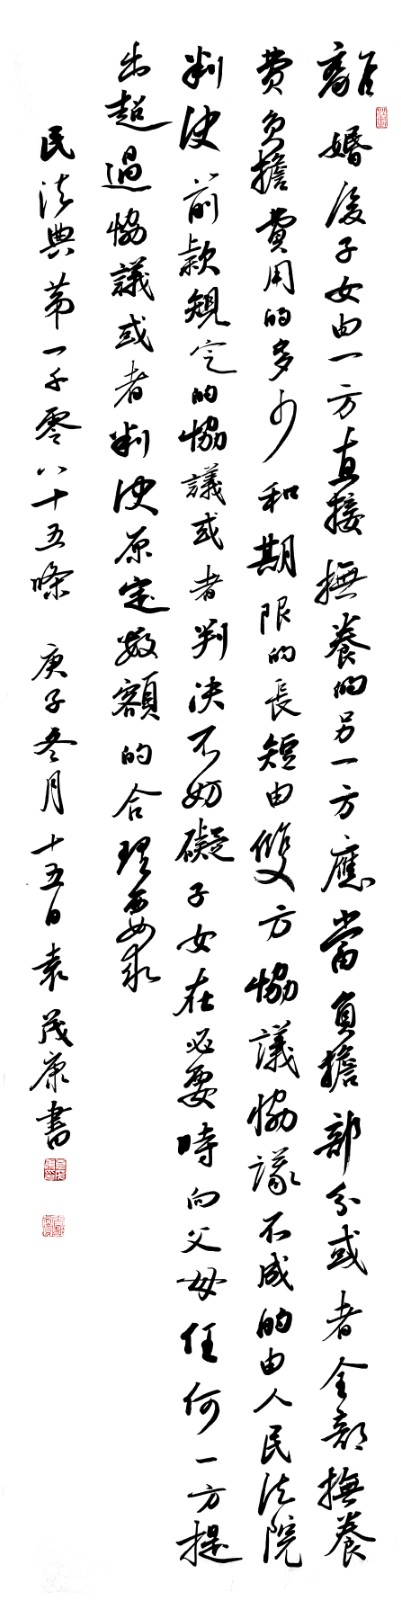 離婚後子女由一方直接撫養的另一方應當負擔部分或者全部撫養
費負擔費用的多少和期限的長短由雙方協議協議不成的由人民法院
判決前款規定的協議或者判決不妨礙子女在必要時向父母任何一方提
出超過協議或者判決原定數額的合理要求
民法典第一千零八十五條 庚子冬月十五日袁茂康書